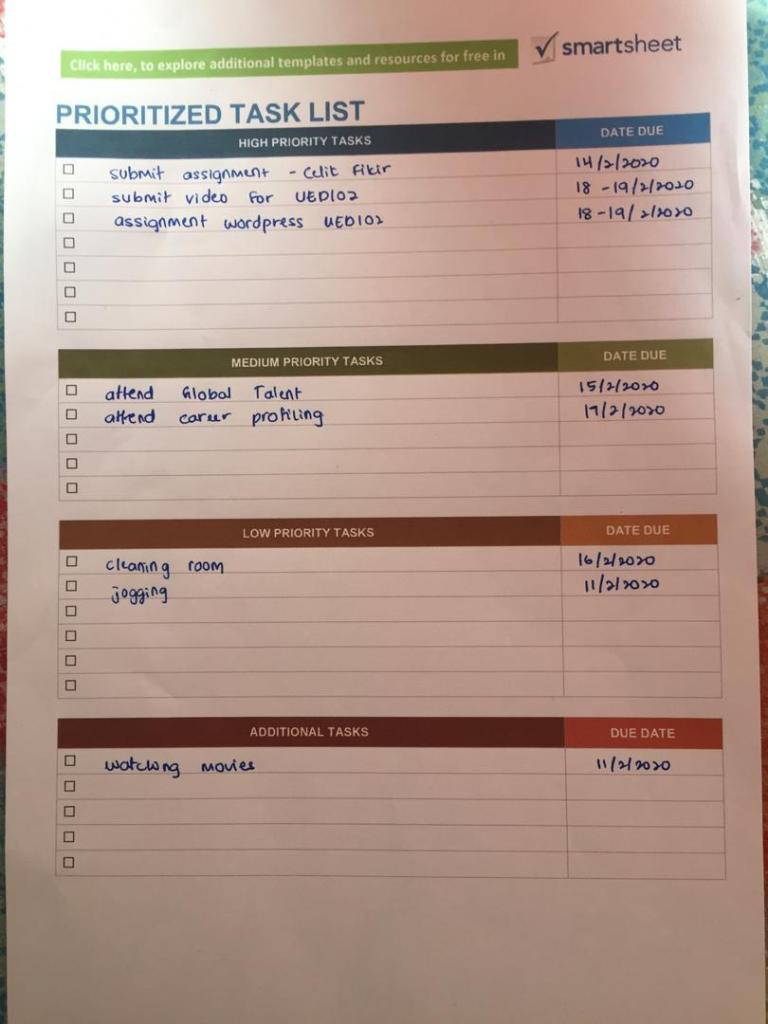 Click here, to explore additional templates and resources for free in
smartsheet
PRIORITIZED TASK LIST
HIGH PRIORITY TASKS DATE DUE
submit assignment - Celit Fikir 14/2/2020
submit video for UED102 18 -19/2/2020
assignment wordpress UED102 18-19/2/2020
MEDIUM PRIORITY TASKS DATE DUE
attend Global Talent 15/2/2020
attend career profiling 17/2/2020
LOW PRIORITY TASKS DATE DUE
cleaning room 16/2/2020
jogging 11/2/2020
ADDITIONAL TASKS DUE DATE
watching movies 11/2/2020